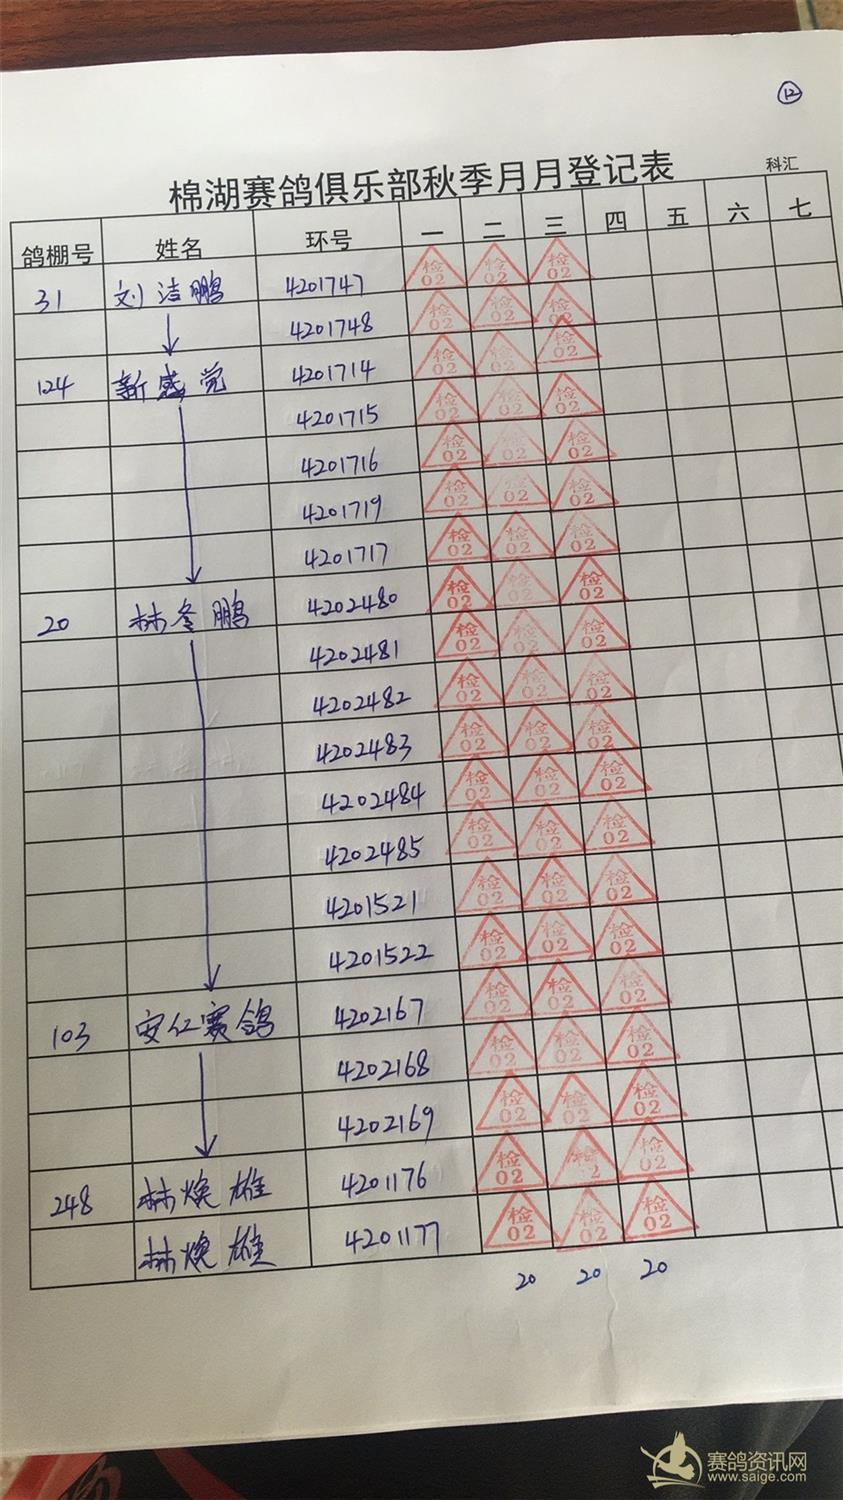 ⑫
棉湖赛鸽俱乐部秋季月月登记表 科汇
鸽棚号 姓名 环号 一 二 三 四 五 六 七
31 刘洁鹏 4201747 检02 检02 检02
4201748 检02 检02 检02
124 新感觉 4201714 检02 检02 检02
4201715 检02 检02 检02
4201716 检02 检02 检02
4201719 检02 检02 检02
4201717 检02 检02 检02
20 林冬鹏 4202480 检02 检02 检02
4202481 检02 检02 检02
4202482 检02 检02 检02
4202483 检02 检02 检02
4202484 检02 检02 检02
4202485 检02 检02 检02
4201521 检02 检02 检02
4201522 检02 检02 检02
103 安仁赛鸽 4202167 检02 检02 检02
4202168 检02 检02 检02
4202169 检02 检02 检02
248 林焕雄 4201176 检02 检2 检02
林焕雄 4201177 检02 检02 检02
20 20 20
赛鸽资讯网
www.saige.com